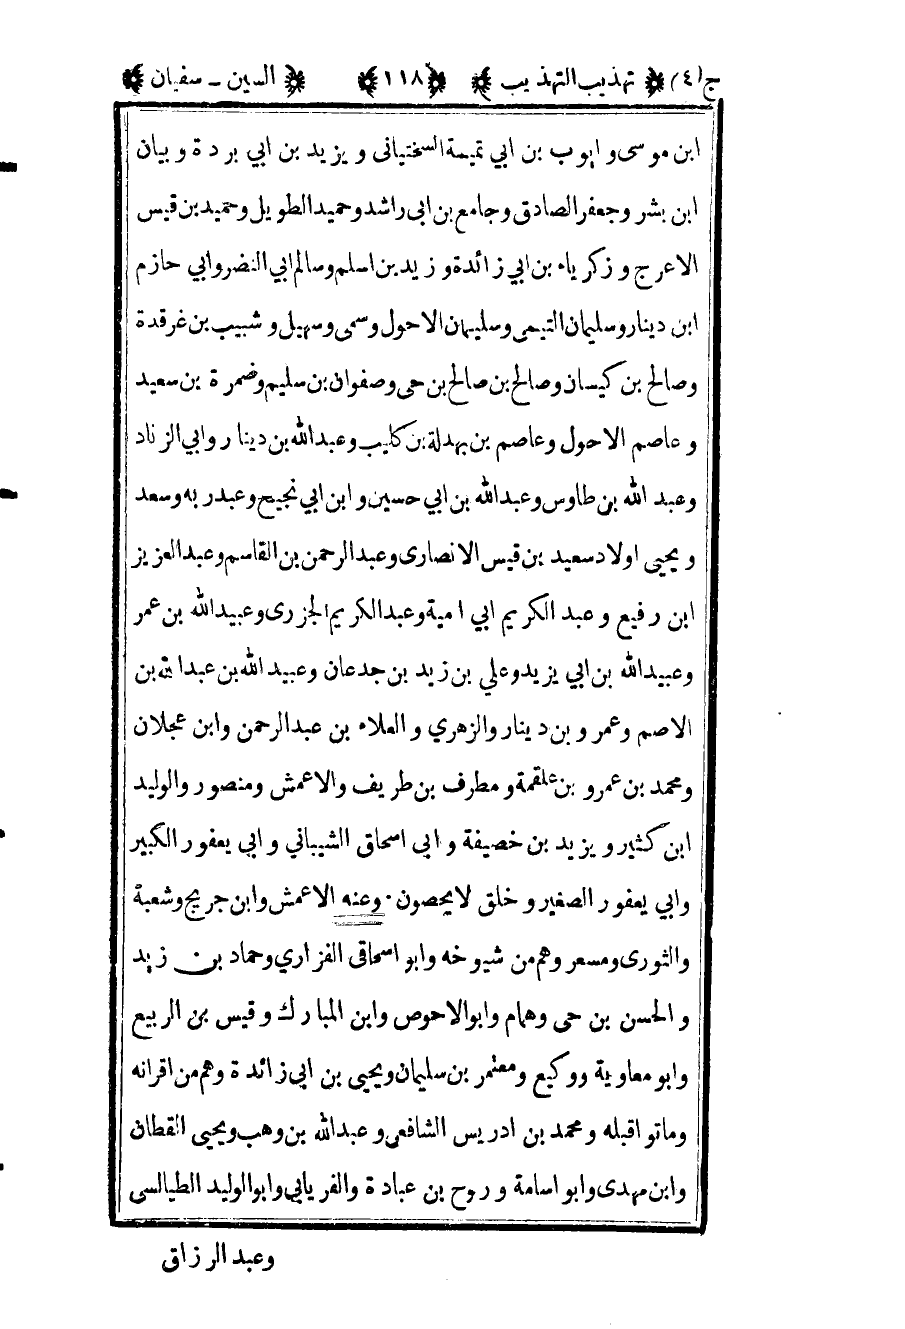 ج(٤) تهذيب التهذيب ١١٨ السين ـ سفيان
ابن موسى و ايوب بن ابي تميمة السختيانى و يزيد بن ابي بردة و بيان
ابن بشر وجعفر الصادق وجامع بن ابى راشد وحميد الطويل وحميد بن قيس
الاعرج و زكرياء بن ابي زائدة و زيد بن اسلم وسالم ابي النضر وابي حازم
ابن دينار وسليمان التيمي وسليمان الاحول وسمى وسهيل و شبيب بن غرقدة
وصالح بن كيسان وصالح بن صالح بن حى وصفوان بن سليم وضمرة بن سعيد
و عاصم الاحول وعاصم بن بهدلة بن كليب وعبدالله بن دينار وابي الزناد
وعبد الله بن طاوس وعبدالله بن ابي حسين و ابن ابي نجيح وعبدربه وسعد
و يحيى اولاد سعيد بن قيس الانصارى وعبدالرحمن بن القاسم وعبدالعزيز
ابن رفيع و عبد الكريم ابي امية وعبدالكريم الجزرى وعبيدالله بن عمر
وعبيدالله بن ابي يزيد وعلي بن زيد بن جدعان وعبيد الله بن عبدالله بن
الاصم وعمرو بن دينار والزهري و العلاء بن عبدالرحمن وابن عجلان
ومحمد بن عمرو بن علقمة و مطرف بن طريف والاعمش ومنصور والوليد
ابن كثير و يزيد بن خصيفة و ابى اسحاق الشيباني و ابي يعفور الكبير
وابي يعفور الصغير و خلق لا يحصون · وعنه الاعمش وابن جريج وشعبة
والثورى ومسعر وهم من شيوخه وابو اسحاق الفزاري وحماد بن زيد
و الحسن بن حى وهمام وابوالاحوص وابن المبارك و قيس بن الربيع
وابو معاوية ووكيع ومعتمر بن سليمان ويحيى بن ابى زائدة وهم من اقرانه
وماتوا قبله ومحمد بن ادريس الشافعى و عبدالله بن وهب ويحيى القطان
وابن مهدى وابو اسامة و روح بن عبادة والفريابي وابوالوليد الطيالسى
وعبد الرزاق